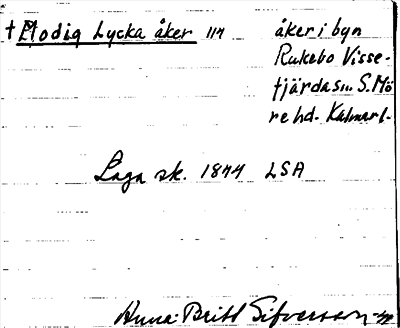 † Modig Lycka åker 114 åker i byn
Rukebo Visse-
fjärda sn. S. Mö
re hd. Kalmar l.
Laga sk. 1844 LSA
Anna-Britt Sifversson